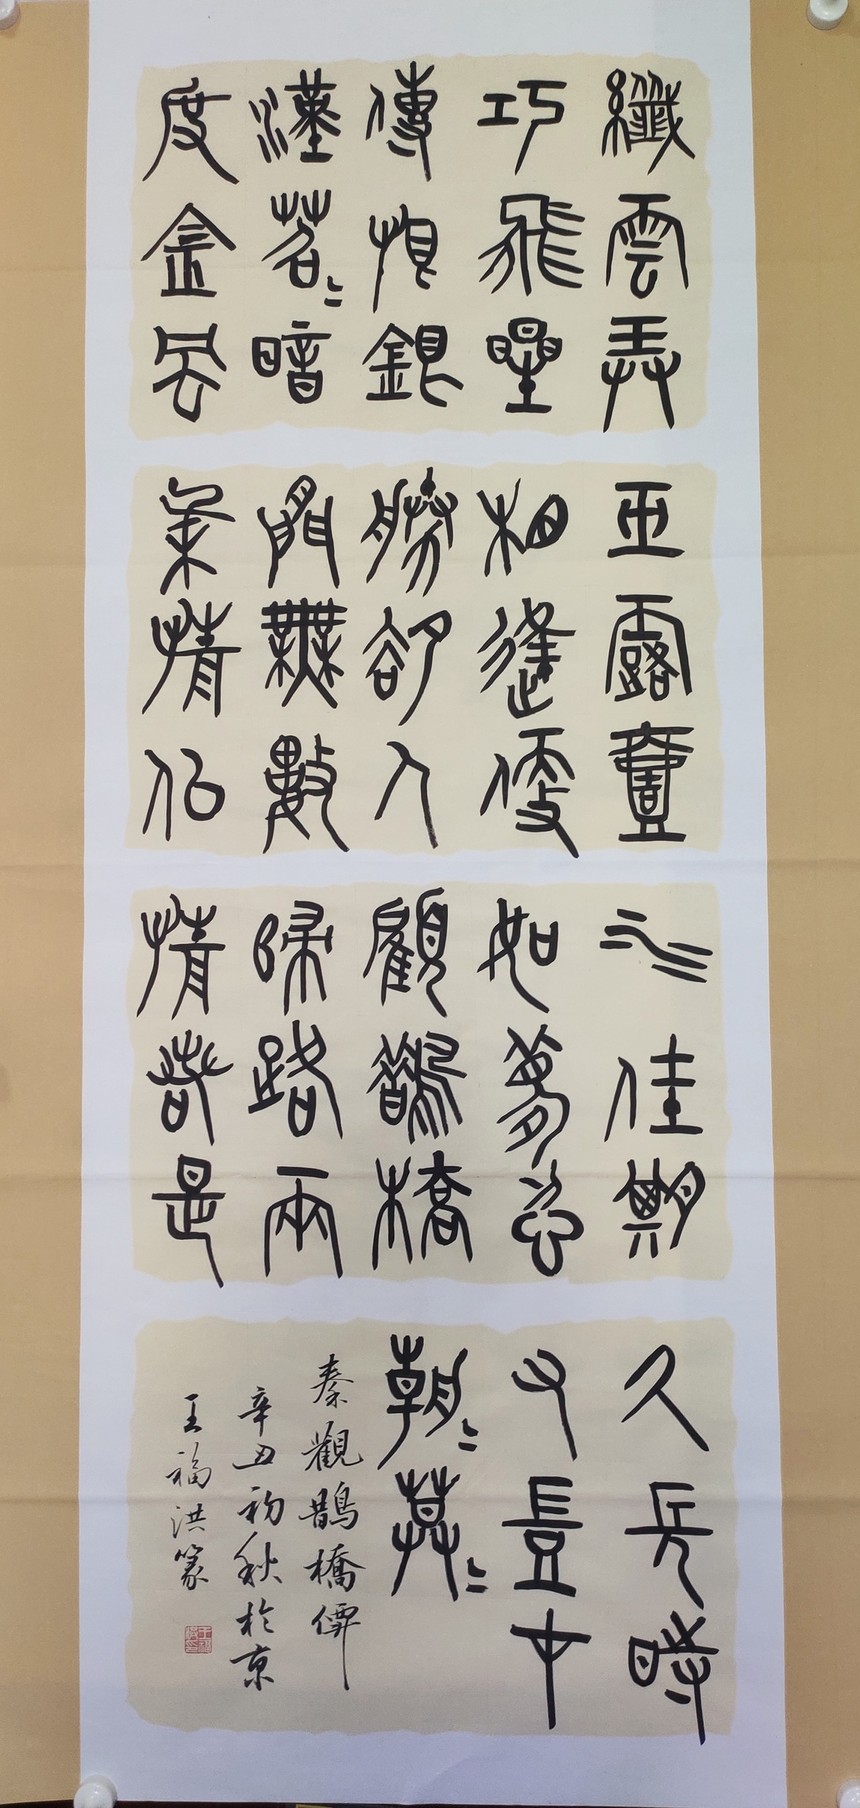 纖雲弄
巧飛星
傳恨銀
漢苕〻暗
度金風
玉露壹
相逢便
勝卻人
間無數
柔情似
水佳期
如夢忍
顧鵲橋
歸路兩
情若是
久長時
又豈在
朝〻暮〻
秦觀鵲橋僊
辛丑初秋於京
王福洪篆